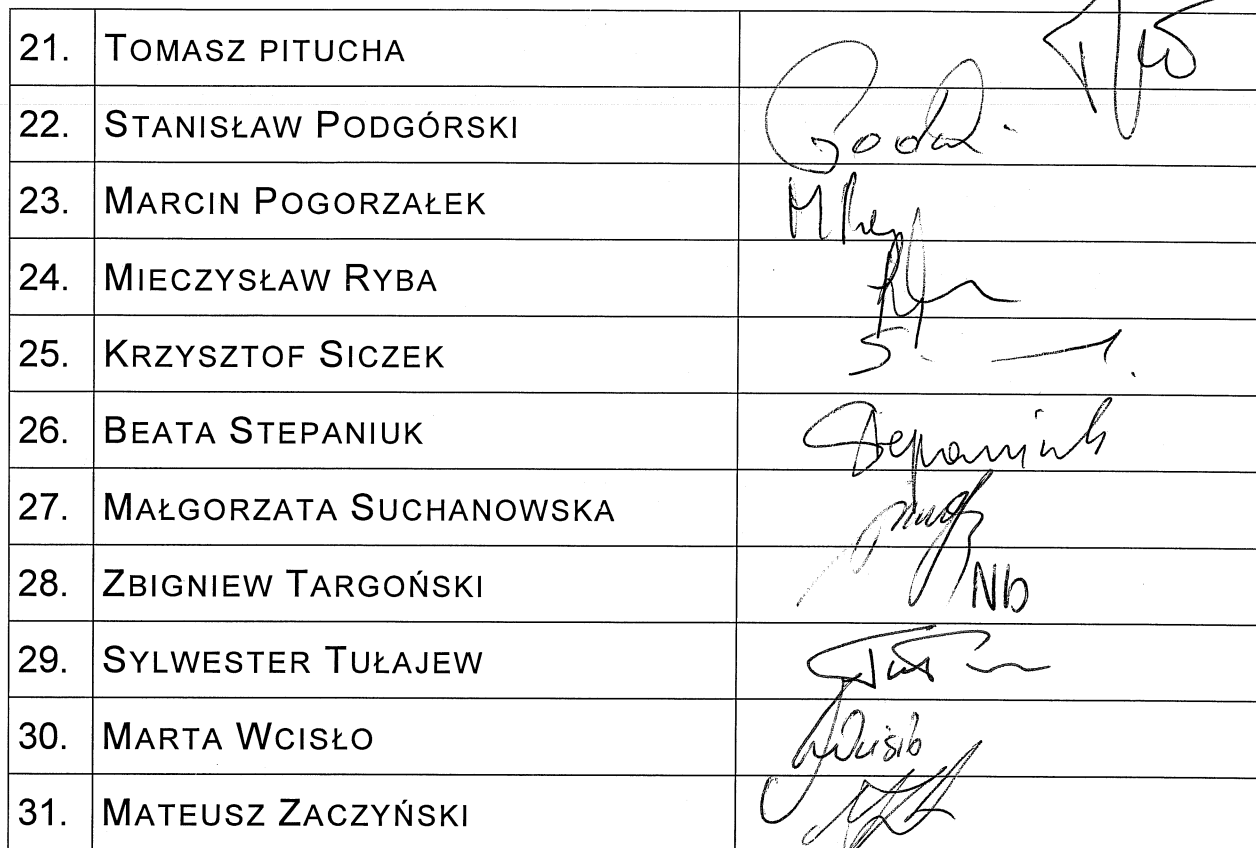 21. TOMASZ PITUCHA
22. STANISŁAW PODGÓRSKI
23. MARCIN POGORZAŁEK
24. MIECZYSŁAW RYBA
25. KRZYSZTOF SICZEK
26. BEATA STEPANIUK Stepaniuk
27. MAŁGORZATA SUCHANOWSKA
28. ZBIGNIEW TARGOŃSKI Nb
29. SYLWESTER TUŁAJEW
30. MARTA WCISŁO Wcisło
31. MATEUSZ ZACZYŃSKI